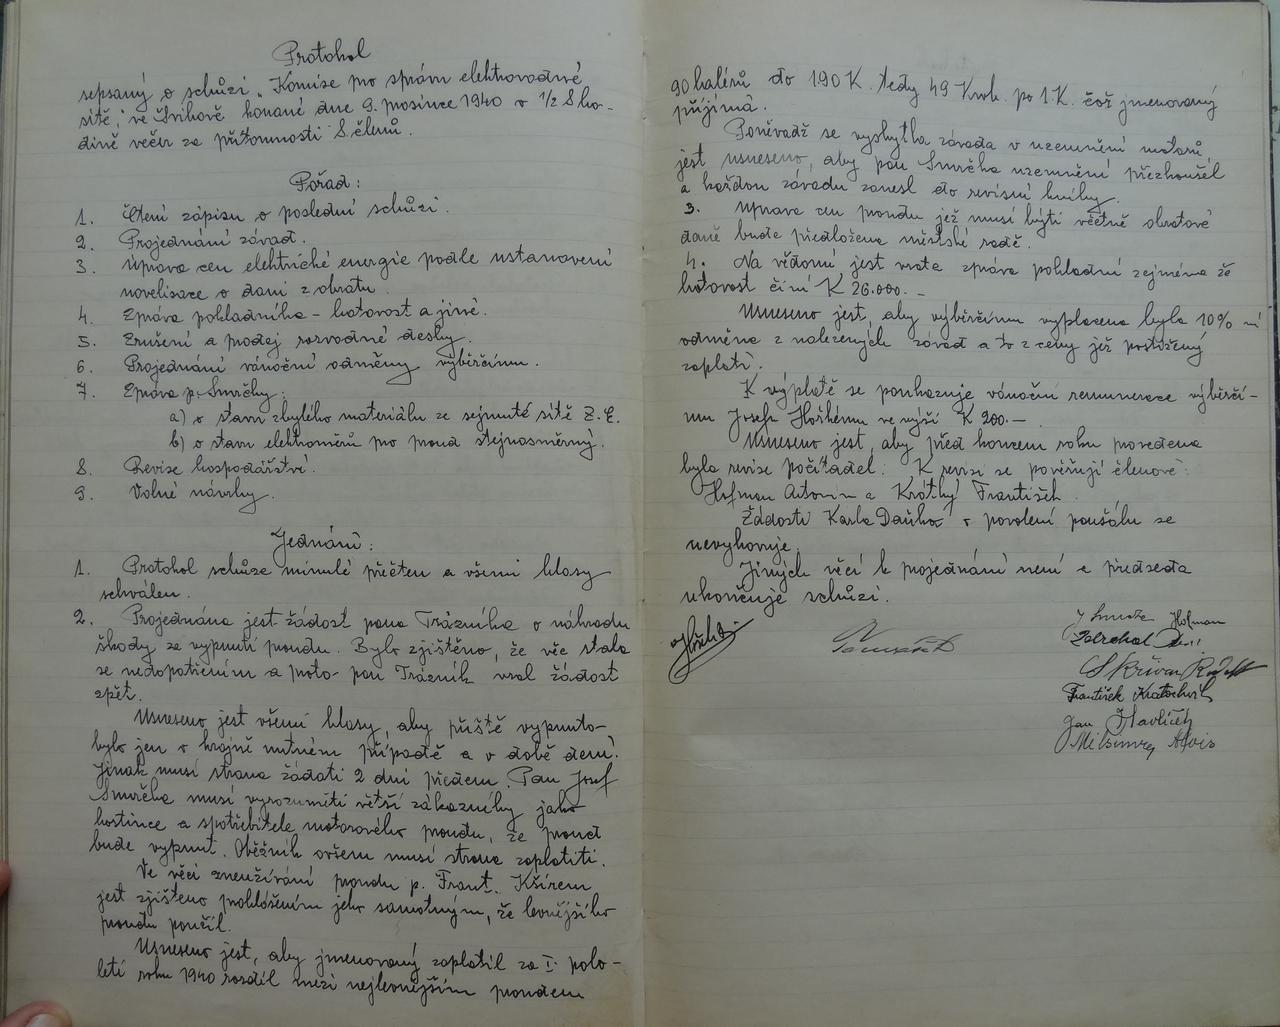 Protokol
sepsaný o schůzi „Komise pro správu elektrovodné
sítě“, ve Švihově konané dne 9. prosince 1940 o 1/2 8 ho-
dině večer za přítomnosti 8 členů.
Pořad:
1. Čtení zápisu o poslední schůzi.
2. Projednání závad.
3. Úprava cen elektrické energie podle ustanovení
novelisace o dani z obratu.
4. Zpráva pokladního – hotovost a jiné.
5. Zrušení a prodej rozvodné desky.
6. Projednání vánoční odměny výběrčímu.
7. Zpráva p. Smrčky:
a) o stavu zbylého materiálu ze sejmuté sítě Z.E.
b) o stavu elektroměrů pro proud stejnosměrný.
8. Revise hospodářství.
9. Volné návrhy.
Jednání:
1. Protokol schůze minulé přečten a všemi hlasy
schválen.
2. Projednána jest žádost pana Trázníka o náhradu
škody za vypnutí proudu. Bylo zjištěno, že věc stala
se nedopatřením a proto pan Trázník vzal žádost
zpět.
Usneseno jest všemi hlasy, aby příště vypnuto
bylo jen v krajně nutném případě a v době denní.
Jinak musí strana žádati 2 dni předem. Pan Josef
Smrčka musí vyrozuměti větší zákazníky jako
hostince a spotřebitele motorového proudu, že proud
bude vypnut. Oběžník ovšem musí strana zaplatiti.
Ve věci zneužívání proudu p. Frant. Kšírem
jest zjištěno prohlášením jeho samotným, že levnějšího
proudu použil.
Usneseno jest, aby jmenovaný zaplatil za I. polo-
letí roku 1940 rozdíl mezi nejlevnějším proudem
90 haléřů do 1.90 K. tedy 49 Kwh. po 1 K. což jmenovaný
přijímá.
Poněvadž se vyskytla závada v uzemnění motorů,
jest usneseno, aby pan Smrčka uzemnění přezkoušel
a každou závadu zanesl do revisní knihy.
3. Úprava cen proudu jež musí býti včetně obratové
daně bude předložena městské radě.
4. Na vědomí jest vzata zpráva pokladní zejména že
hotovost činí K 26.000.–
Usneseno jest, aby výběrčímu vyplacena byla 10%
odměna z nalezených závad a to z ceny jež postižený
zaplatí.
K výplatě se poukazuje vánoční remunerace výběrčí-
mu Josefu Horkému ve výši K 200.–
Usneseno jest, aby před koncem roku provedena
byla revise počítadel. K revisi se pověřují členové:
Hofman Antonín a Krátký František.
Žádosti Karla Daňka o povolení paušálu se
nevyhovuje.
Jiných věcí k projednání není a předseda
ukončuje schůzi.
J Smrčka Hofman
František Kratochvíl
Jan Havlíček
Alois